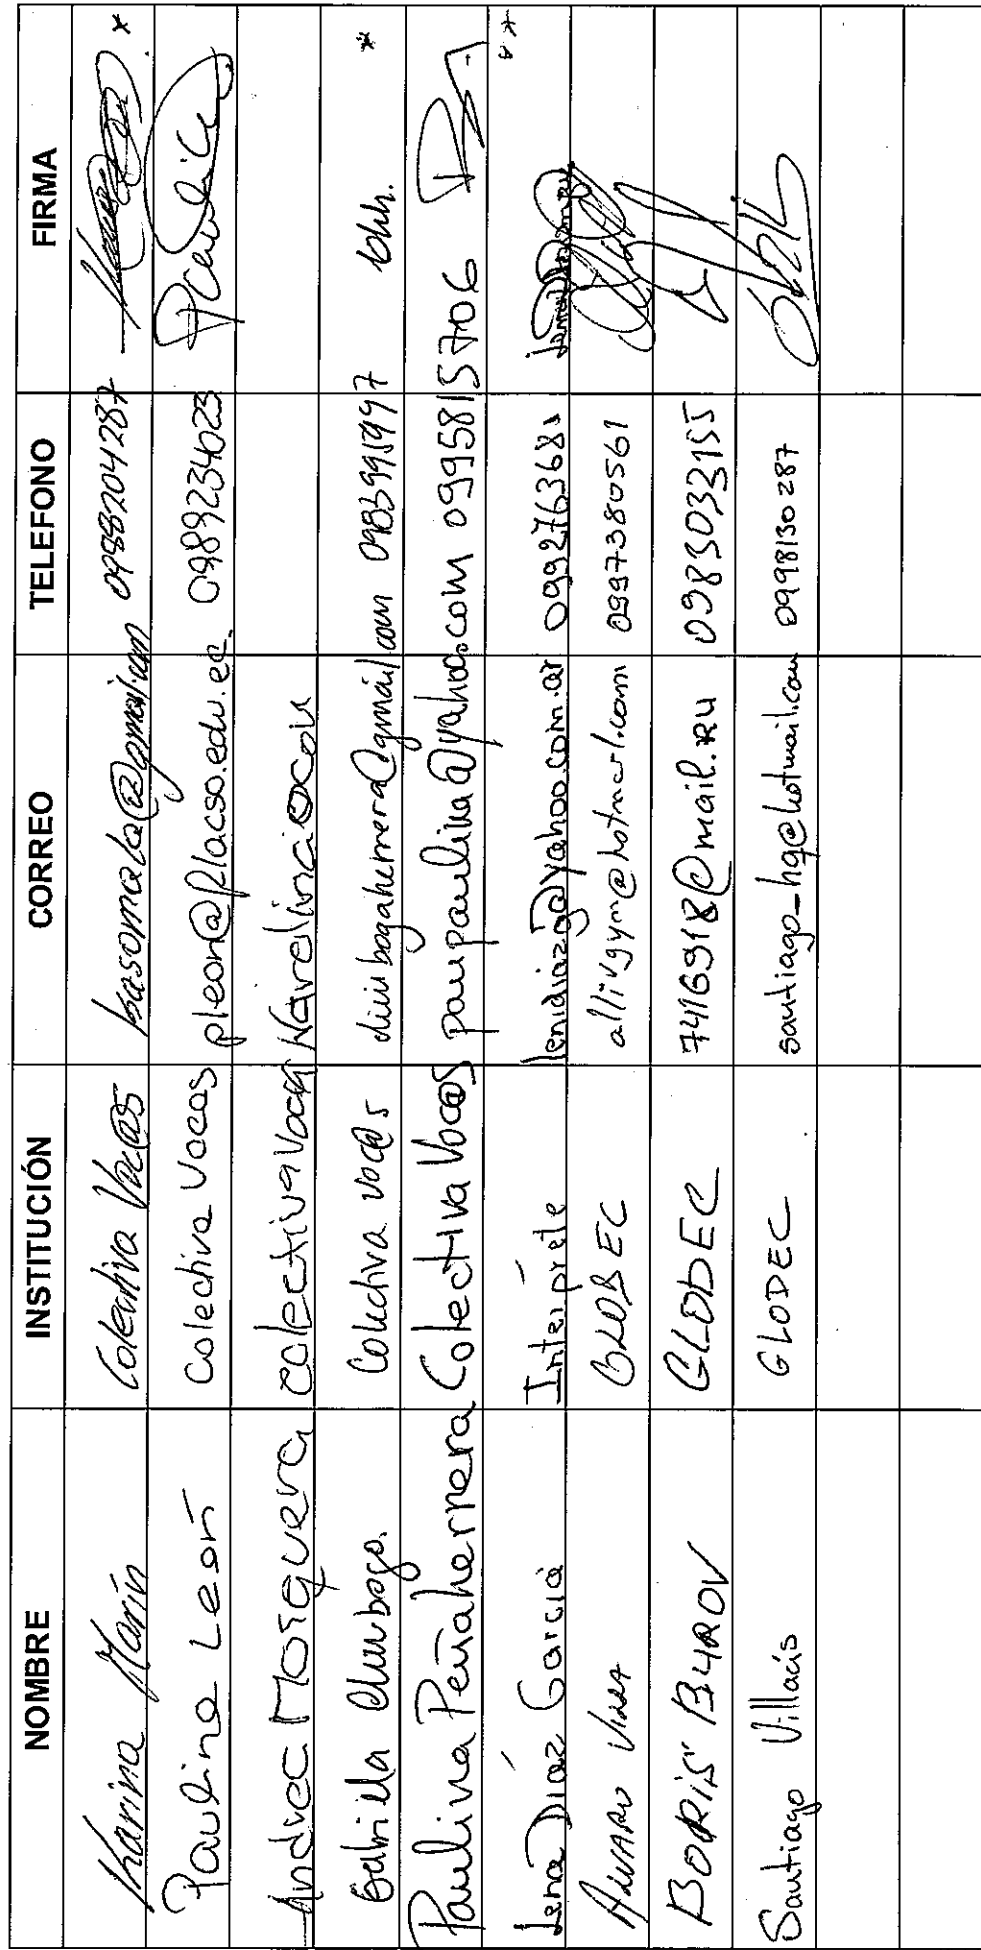 NOMBRE INSTITUCIÓN CORREO TELEFONO FIRMA
Karina Marín Colectiva Voc@s kasomala@gmail.com 0988204287 *
Paulina León Colectiva Vocas pleon@flacso.edu.ec. 0989234023
Andrea Mosquera colectiva Vocas
Gabriella Chumbogo. Colectiva Voc@s 0983991997 *
Paulina Peñaherrera Colectiva Voc@s paupaulina@yahoo.com 0995815706 **
Lena Díaz García Intérprete lenidiazg@yahoo.com.ar 0992763681
ALVARO GLODEC allivgym@hotmail.com 0997380561
BORIS BUROV GLODEC 7416918@mail.RU 0983032155
Santiago Villacís GLODEC santiago_hg@hotmail.com 0998130287